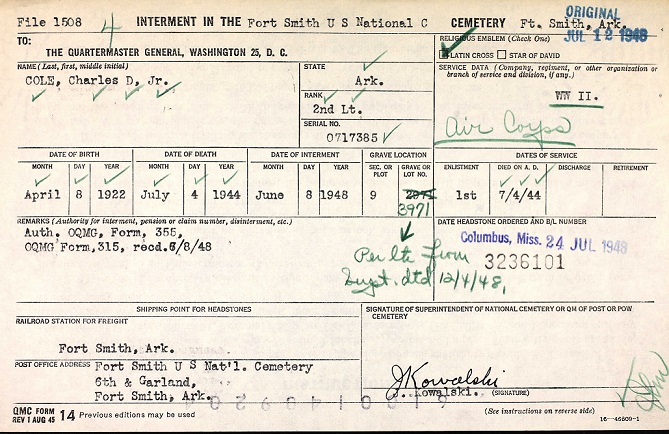 File 1508 4 INTERMENT IN THE Fort Smith U S National C CEMETERY Ft. Smith, Ark.
ORIGINAL
JUL 12 1948
TO:
THE QUARTERMASTER GENERAL, WASHINGTON 25, D. C.
RELIGIOUS EMBLEM (Check One)
LATIN CROSS STAR OF DAVID
NAME (Last, first, middle initial)
COLE, Charles D, Jr.
STATE
Ark.
RANK
2nd Lt.
SERIAL NO.
0717385
SERVICE DATA (Company, regiment, or other organization or
branch of service and division, if any.)
WW II.
Air Corps
DATE OF BIRTH DATE OF DEATH DATE OF INTERMENT GRAVE LOCATION DATES OF SERVICE
MONTH DAY YEAR MONTH DAY YEAR MONTH DAY YEAR SEC. OR PLOT GRAVE OR LOT NO. ENLISTMENT DIED ON A. D. DISCHARGE RETIREMENT
April 8 1922 July 4 1944 June 8 1948 9 2971 1st 7/4/44
3971
REMARKS (Authority for interment, pension or claim number, disinterment, etc.)
Auth. OQMG, Form, 355,
OQMG Form,315, recd.6/8/48
Per ltr from
Supt. dtd 12/4/48,
DATE HEADSTONE ORDERED AND B/L NUMBER
Columbus, Miss. 24 JUL 1948
3236101
SHIPPING POINT FOR HEADSTONES
RAILROAD STATION FOR FREIGHT
Fort Smith, Ark.
POST OFFICE ADDRESS Fort Smith U S Nat'l. Cemetery
6th & Garland,
Fort Smith, Ark.
SIGNATURE OF SUPERINTENDENT OF NATIONAL CEMETERY OR QM OF POST OR POW
CEMETERY
J. Kowalski
J. Kowalski. (SIGNATURE)
QMC FORM
REV 1 AUG 45 14 Previous editions may be used
(See instructions on reverse side)
16—46609-1